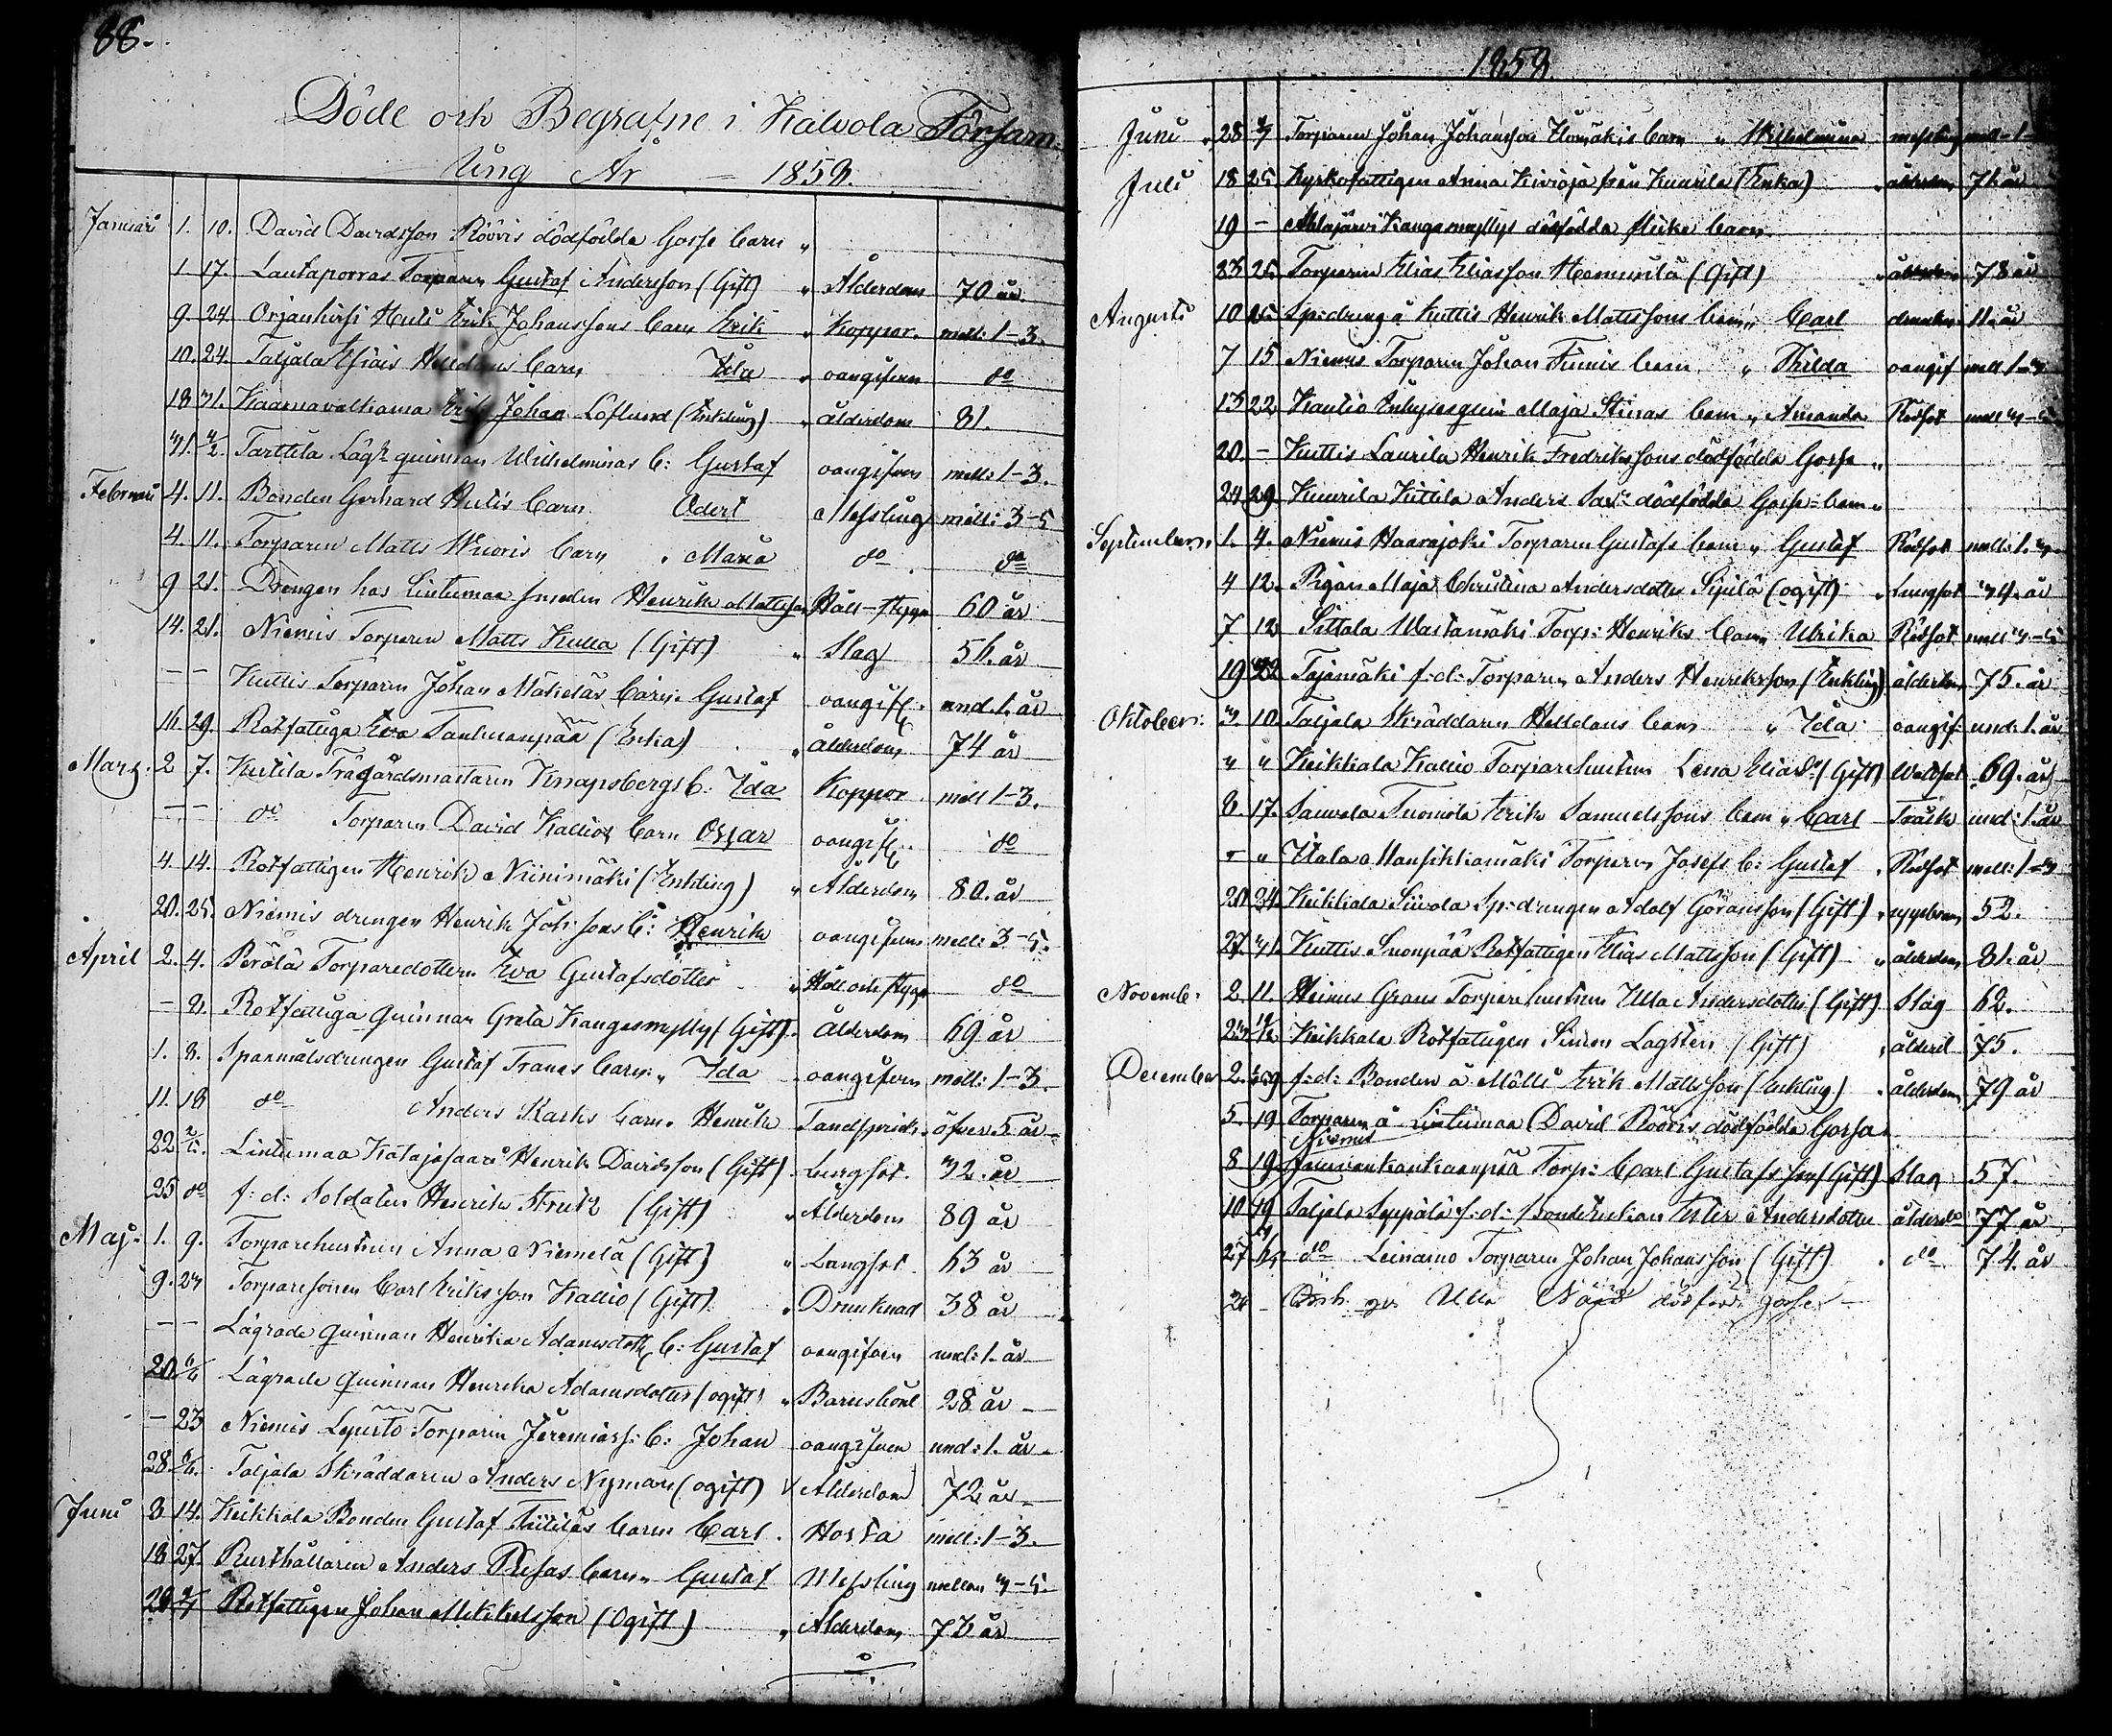 88.
Döde och Begrafne i Kalvola Församling
År 1859.
Januari 1. 10. David Davidsson Röövis dödfödde Gosse barn "
1 17. Lautaporras Torparen Gustaf Andersson (Gift) " Ålderdom 70 år
9. 24 Orjanhirsi Huti Erik Johanssons barn Erik " Koppor. mell: 1-3.
10. 24. Taljala barn oangifven do
18 31. Kaarnavalkama Erik Johan Löflund (Enkling) " ålderdom 81.
31. 4/2 Tarttila Läg: quinnan Wilhelminas b: Gustaf oangifven mell: 1-3.
Februari 4. 11. Bonden Gerhard Hutis barn Edert Messling mell: 3-5
4. 11. Torparen Matts Wuoris barn " Maria do do
9 21. Drengen hos Lintumaa smeden Henrik Mattsson Håll-stygn 60 år
14. 21. Niemis Torparen Matts Kulla (Gift) " Slag 56. år
— — Kuttis Torparen Johan Mäkeläs barn. Gustaf oangif. und. 1. år
16 29. Rotfattiga Eva (Enka) " ålderdom 74 år
Mars. 2 7. Kutila Trägårdsmästaren Knapsbergs b: Ida Koppor mell 1-3.
— — do Torparen David Kallios barn Oscar oangif. do
4 14. Rotfattigen Henrik Niinimäki (Enkling) " Ålderdom 80. år
20. 25. Niemis drengen Henrik Joh: sons b: Henrik oangifven mell: 3-5.
April 2. 4. Perälä Torparedottern Eva Gustafsdotter " Håll och stygn do
— 8. Rotfattiga quinnan Greta Kangasmylly (Gift). Ålderdom 69 år
1. 8. Spanmålsdrengen Gustaf Tranes barn. " Ida oangifven mell: 1-3.
11. 18 do Anders Karks barn. Henrik Tandsprick. öfver 5 år
22 2/5. Lintumaa Katajasaari Henrik Davidsson (Gift). Lungsot. 32. år
25 do f: d: Soldaten Henrik Strutz (Gift) " Ålderdom 89 år
Maj. 1. 9. Torparehustrun Anna Niemelä (Gift) " Lungsot 63 år
9. 23 Torparesonen Carl Eriksson Kallio (Gift) " Drunknad 38 år
— — Lägrade quinnan Henrika Adamsdott. b: Gustaf oangifven und: 1. år
20. 6/6 Lägrade quinnan Henrika Adamsdotter (ogift) " Barnsbörd 28 år
— 23 Niemis Torparen Jeremiass: b: Johan oangifven und: 1. år
28. 6/6. Taljala Skräddaren Anders Nyman (ogift) Ålderdom 72 år
Juni 8 14. Keikkala Bonden Gustaf barn Carl. Hosta mell: 1-3.
18 27. Rusthållaren Anders barn " Gustaf Messling mellan 3-5.
Rotfattigen Johan Mikkelsson (Ogift) " Ålderdom 73 år
1859
Juni 28 Torparen Johan Johansson barn " Wilhelmina messling mell-1-
Juli 18 25 Kyrkofattigen Anna från Kuurila (Enka) " ålderdom 71 år
19 — Ahlajärvi Kangasmyllys dödfödda flicke barn.
23 25 Torparen Elias Eliasson Hemmilä (Gift) " ålderdom 78 år
Augusti 10 15 Sp: dreng å Kuttis Henrik Mattssons barn " Carl drunkn. 11. år
7 15 Niemis Torparen Johan barn. " Thilda oangif mell 1-3
13 22 Kautio Inhysesquin Maja Stinas barn " Amanda Rödsot mell 3-5
20. — Kuttis Laurila Henrik Fredrikssons dödfödda Gosse "
24 29. Kuurila Kittila Anders dödfödde Gosse=barn "
September. 1. 4. Niemis Haarajoki Torparen Gustafs barn " Gustaf Rödsot mell: 1. 3
4 12. Pigan Maja Christina Andersdotter Sipilä (ogift) " Lungsot 34. år
7 12 Sittala Wastamäki Torp: Henriks barn Ulrika Rödsot mell 3-5
19 Tajamäki f: d: Torparen Anders Henriksson (Enkling) ålderdom 75. år
Oktober: 3. 10. Taljala Skräddaren barn " Ida oangif: und: 1. år
" " Keikkala Kallio Torparehustrun Lena Eliasd: (Gift) Wattsot 69. år
8. 17. Sauvala Tuomola Erik Samuelssons barn " Carl Tråsk und: 1. år
" " Itala Mansikkamäki Torparen Josefs b: Gustaf . Rödsot mell: 1-3
20 24. Keikkala Siivola Sp: drengen Adolf Göransson (Gift) " 52.
27. 31. Kuttis Rotfattigen Elias Mattsson (Gift) " ålderdom 81. år
Novemb. 2. 11. Torparehustrun Ulla Andersdotter (Gift) Slag 62.
Keikkala Rotfattigen Simon Lagsten (Gift) " ålderd 75.
December 2. f: d: Bonden å Mälli Erik Mattsson (Enkling) . ålderdom 79 år
5. 19 Torparen å Lintumaa David Röövis dödfödda Gosse.
Niemis
8 19 Torp: Carl Gustafsson (Gift) Slag 57.
10 19 Taljala Seppälä f: d: Bonde Enkan Ester Andersdotter ålderdo 77 år
27 do Leinamo Torparen Johan Johansson (Gift) . do 74. år
Ulla dödfödd gosse